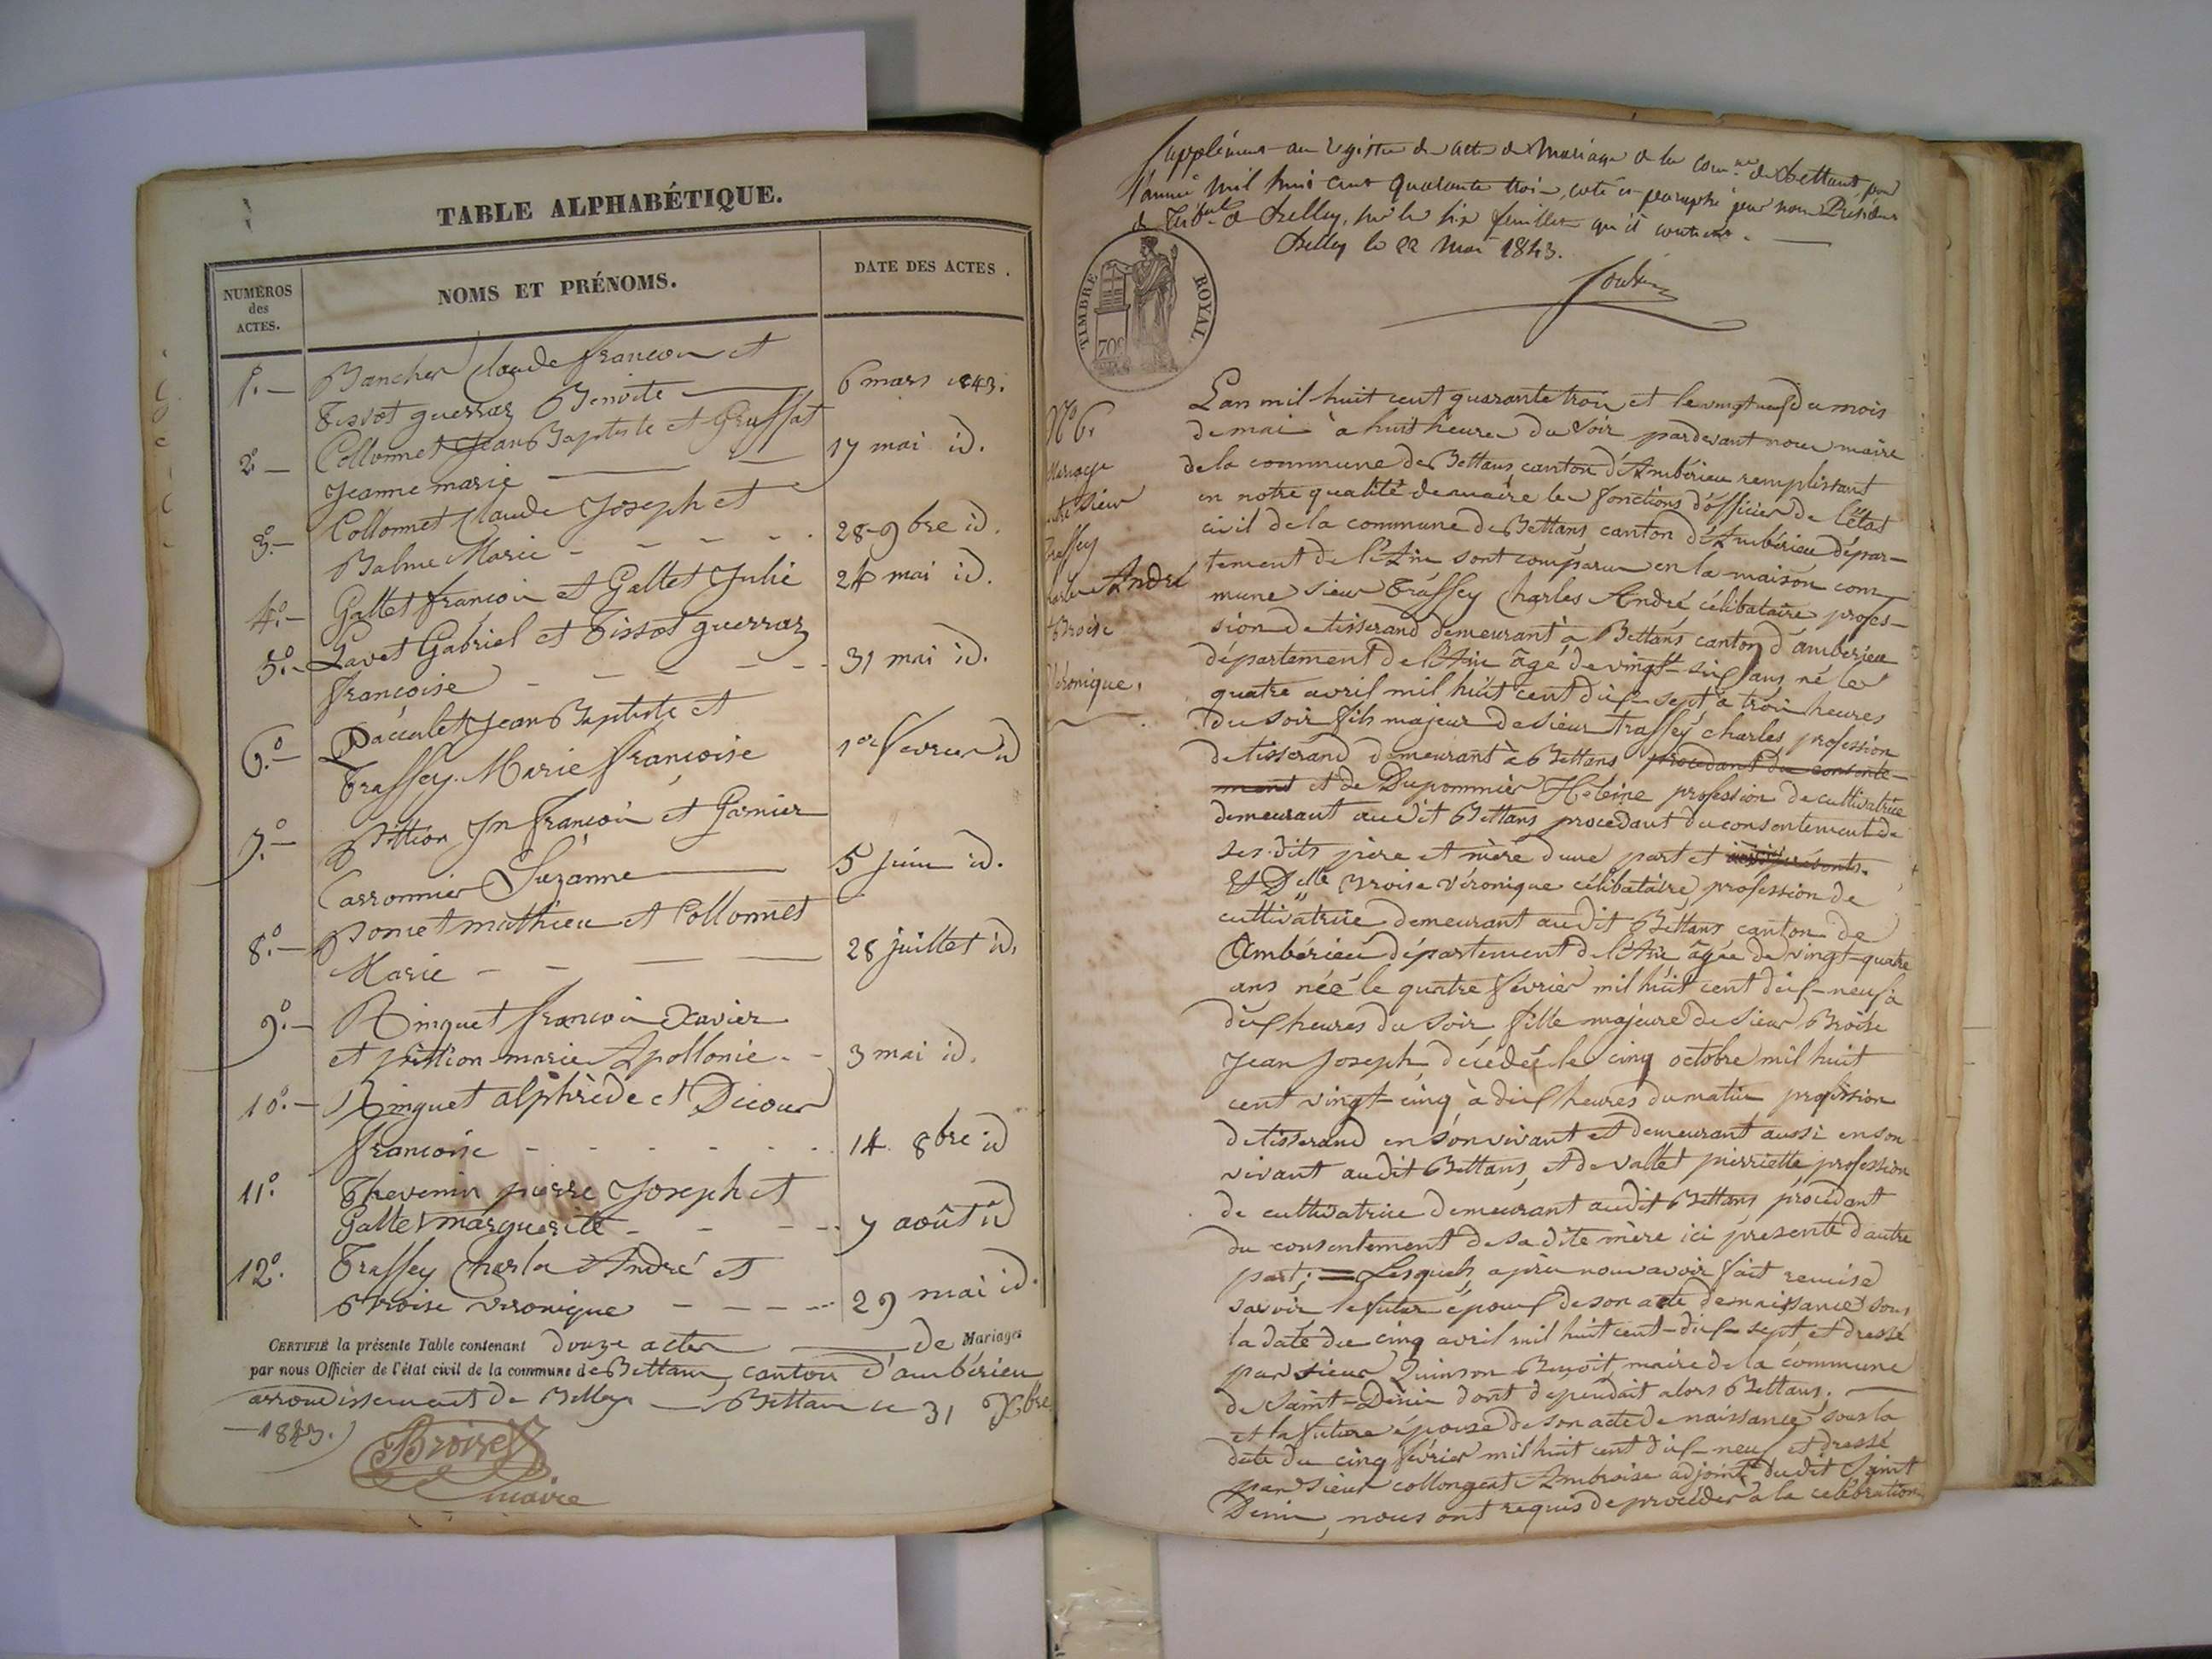 TABLE ALPHABÉTIQUE.
NUMÉROS
des
ACTES.
NOMS ET PRÉNOMS.
DATE DES ACTES.
1.- Bancher Claude françois et
Tissot guerraz Benoite 6 mars 1843.
2º- Collonnet Jean Baptiste et Gruffat
Jeanne marie 17 mai id.
3º.- Collonnet Claude Joseph et
Balme Marie - - - - 28 9bre id.
4º.- Gallet françois et Gallet Julie 24 mai id.
5º.- Lavet Gabriel et Tissot guerraz
françoise - - - - - 31 mai id.
6º.- Paccalet Jean Baptiste et
Traffey Marie françoise 1er fevrier id
7º.- Pittion Jn françois et Garnier
Carronnier Suzanne 5 juin id.
8º.- Ponce mathieu et Collonnet
Marie - - 28 juillet id.
9º.- Ringuet françois Xavier
et pittion marie Apollonie - - 3 mai id.
10º.- Ringuet alphrède et Decour
françoise - - - - - 14 8bre id
11º. Thevenin pierre Joseph et
Gallet marguerite - - - 7 août id
12º. Traffey Charles André et
Broise veronique - - - - 29 mai id.
CERTIFIÉ la présente Table contenant douze actes de Mariages
par nous Officier de l'état civil de la commune de Bettans, canton d'ambérieu
arrondissement de Belley Bettans le 31 Xbre
1843.
Broise
maire
Supplément au registre des actes de Mariage de la comne de Bettans pour
l'année mil huit cent quarante trois, coté et paraphé par nous Président
du Tribal de Belley, sur les six feuillets qu'il contient.
Belley le 22 Mai 1843.
TIMBRE ROYAL.
70c
Nº 6.
Mariage
entre sieur
Traffey
Charles André
et Broise
Véronique.
L'an mil huit cent quarante trois et le vingt neuf du mois
de mai à huit heures du soir pardevant nous maire
de la commune de Bettans, canton d'Ambérieu remplissant
en notre qualité de maire les fonctions d'officier de l'état
civil de la commune de Bettans, canton d'Ambérieu dépar-
tement de l'Ain sont comparus en la maison com-
mune sieur Traffey Charles André célibataire profes-
sion de tisserand demeurant à Bettans canton d'amberieu
département de l'Ain âgé de vingt-six ans né le
quatre avril mil huit cent dix-sept à trois heures
du soir fils majeur de sieur Traffey charles profession
de tisserand demeurant à Bettans procédant du consente-
ment et de Dupommier Héleine profession de cultivatrice
demeurant audit Bettans procédant du consentement de
ses dits père et mère d'une part et ici présents.
Et Delle Broise Véronique célibataire, profession de
cultivatrice demeurant audit Bettans canton de
Ambérieu département de l'Ain âgée de vingt-quatre
ans née le quatre février mil huit cent dix-neuf à
dix heures du soir fille majeure de sieur Broise
Jean Joseph, décédé le cinq octobre mil huit
cent vingt-cinq à dix heures du matin profession
de tisserand en son vivant et demeurant aussi en son
vivant audit Bettans, et de Vallet pierriette profession
de cultivatrice demeurant audit Bettans procédant
du consentement de sa dite mère ici présente d'autre
part; Lesquels, après nous avoir fait remise
savoir le futur époux de son acte de naissance sous
la date du cinq avril mil huit cent-dix-sept et dressé
par sieur Quinson Benoit, maire de la commune
de Saint-Denis dont dépendait alors Bettans.
et la future épouse de son acte de naissance sous la
date du cinq février mil huit cent dix-neuf et dressé
par sieur collongeat Ambroise adjoint dudit Saint
Denis, nous ont requis de procéder à la célébration